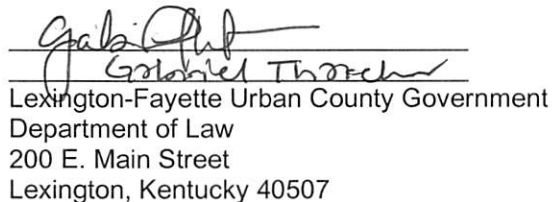 Lexington-Fayette Urban County Government
Department of Law
200 E. Main Street
Lexington, Kentucky 40507